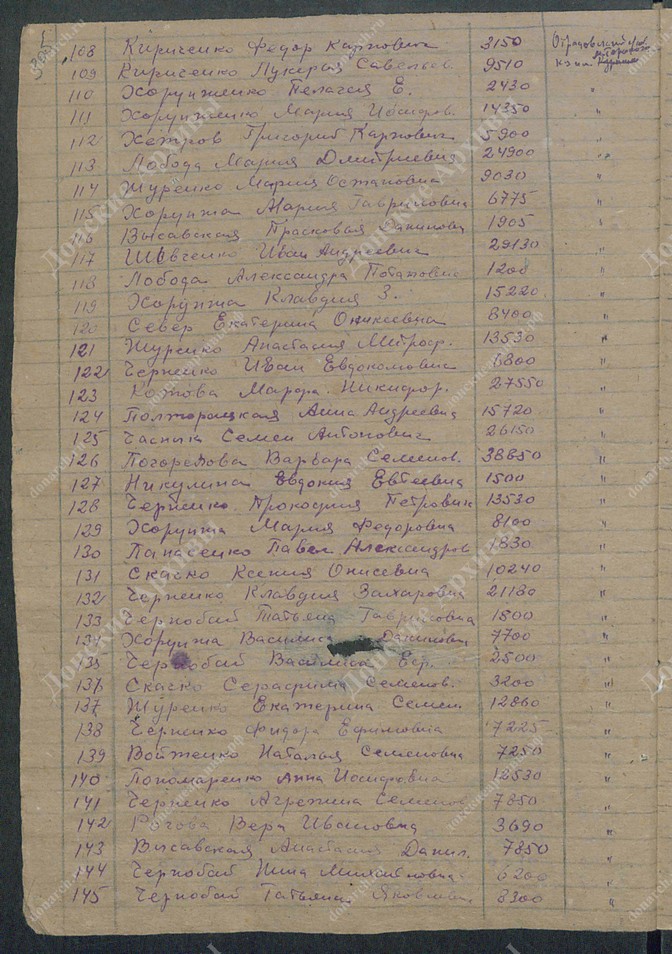 108 Кириченко Федор Карпович 3150
109 Кириченко Лукерья Савельев. 9510
110 Хорунженко Пелагея Е. 2430 "
111 Хорунженко Мария 14350 "
112 Григорий Карпович 5900 "
113 Лобода Мария Дмитриевна 24900 "
114 Журенко Мария Остаповна 9030 "
115 Хорунжа Мария Гавриловна 6775 "
116 Высавская Прасковья 1905 "
117 Шевченко Иван Андреевич 29130 "
118 Лобода Александра Потаповна 1200 "
119 Хорунжа Клавдия З. 15220 "
120 Север Екатерина Оникиевна 8400 "
121 Журенко Анастасия Митроф. 13530 "
122 Черненко Иван Евдокимович 6800 "
123 Марфа Никифор. 27550 "
124 Полторацкая Анна Андреевна 15720 "
125 Часныка Семен Антонович 26150 "
126 Погорелова Варвара Семенов. 38850 "
127 Никулина Евдокия Евтеевна 1500 "
128 Черненко Прокофий Петрович 13530 "
129 Хорунжа Мария Федоровна 8100 "
130 Панасенко Павел Александров 1830 "
131 Скаско Ксения Онисевна 10240 "
132 Черненко Клавдия Захаровна 21180 "
133 Чернобай Татьяна Гавриловна 1800 "
134 Хорунжа Василиса Даниловн 7700 "
135 Чернобай Василиса Еф. 2500 "
136 Скаско Серафима Семенов. 3200 "
137 Журенко Екатерина Семен. 12860 "
138 Черненко Фидора Ефимовна 7225 "
139 Войженко Наталья Семеновна 7250 "
140 Пономаренко Анна Иосифовна 12530 "
141 Черненко Агрепина Семенов 7850 "
142 Рогова Вера Ивановна 3690 "
143 Высавская Анастасия Данил. 7850 "
144 Чернобай Нина Михайловна 6200 "
145 Чернобай Татьяна Яковлевн 8300 "